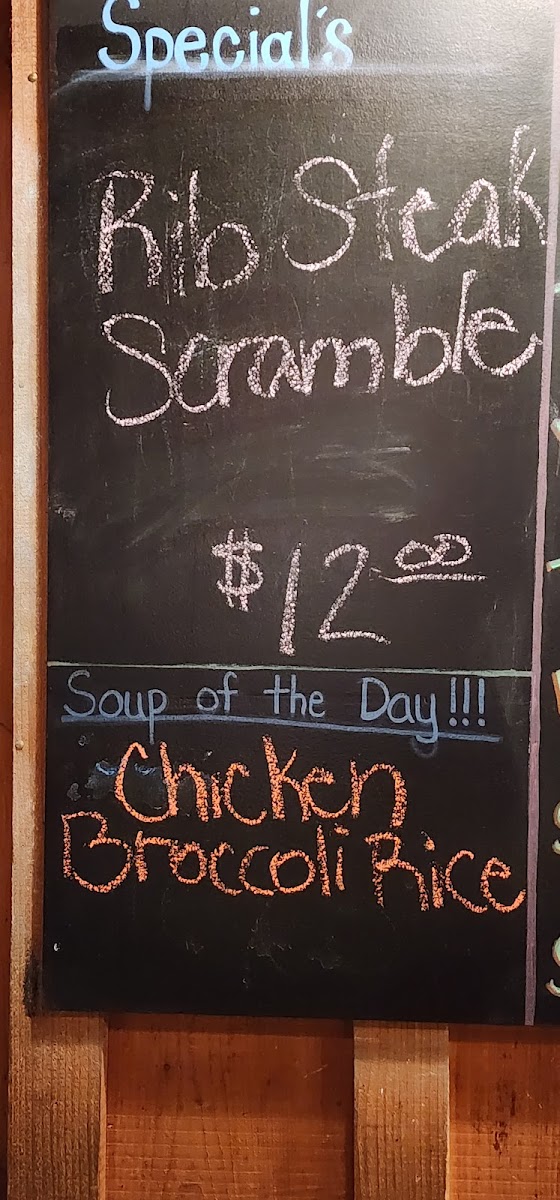 Special's
Rib Steak
Scramble
$12 00
Soup of the Day!!!
Chicken
Broccoli Rice